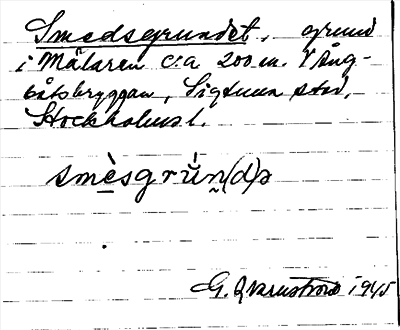 Smedsgrundet, grund
i Mälaren c:a 200 m. V Ång-
båtsbryggan, Sigtuna stad,
Stockholms l.
smèsgrǘn̰(d)ə
G. Qvarnström 1945